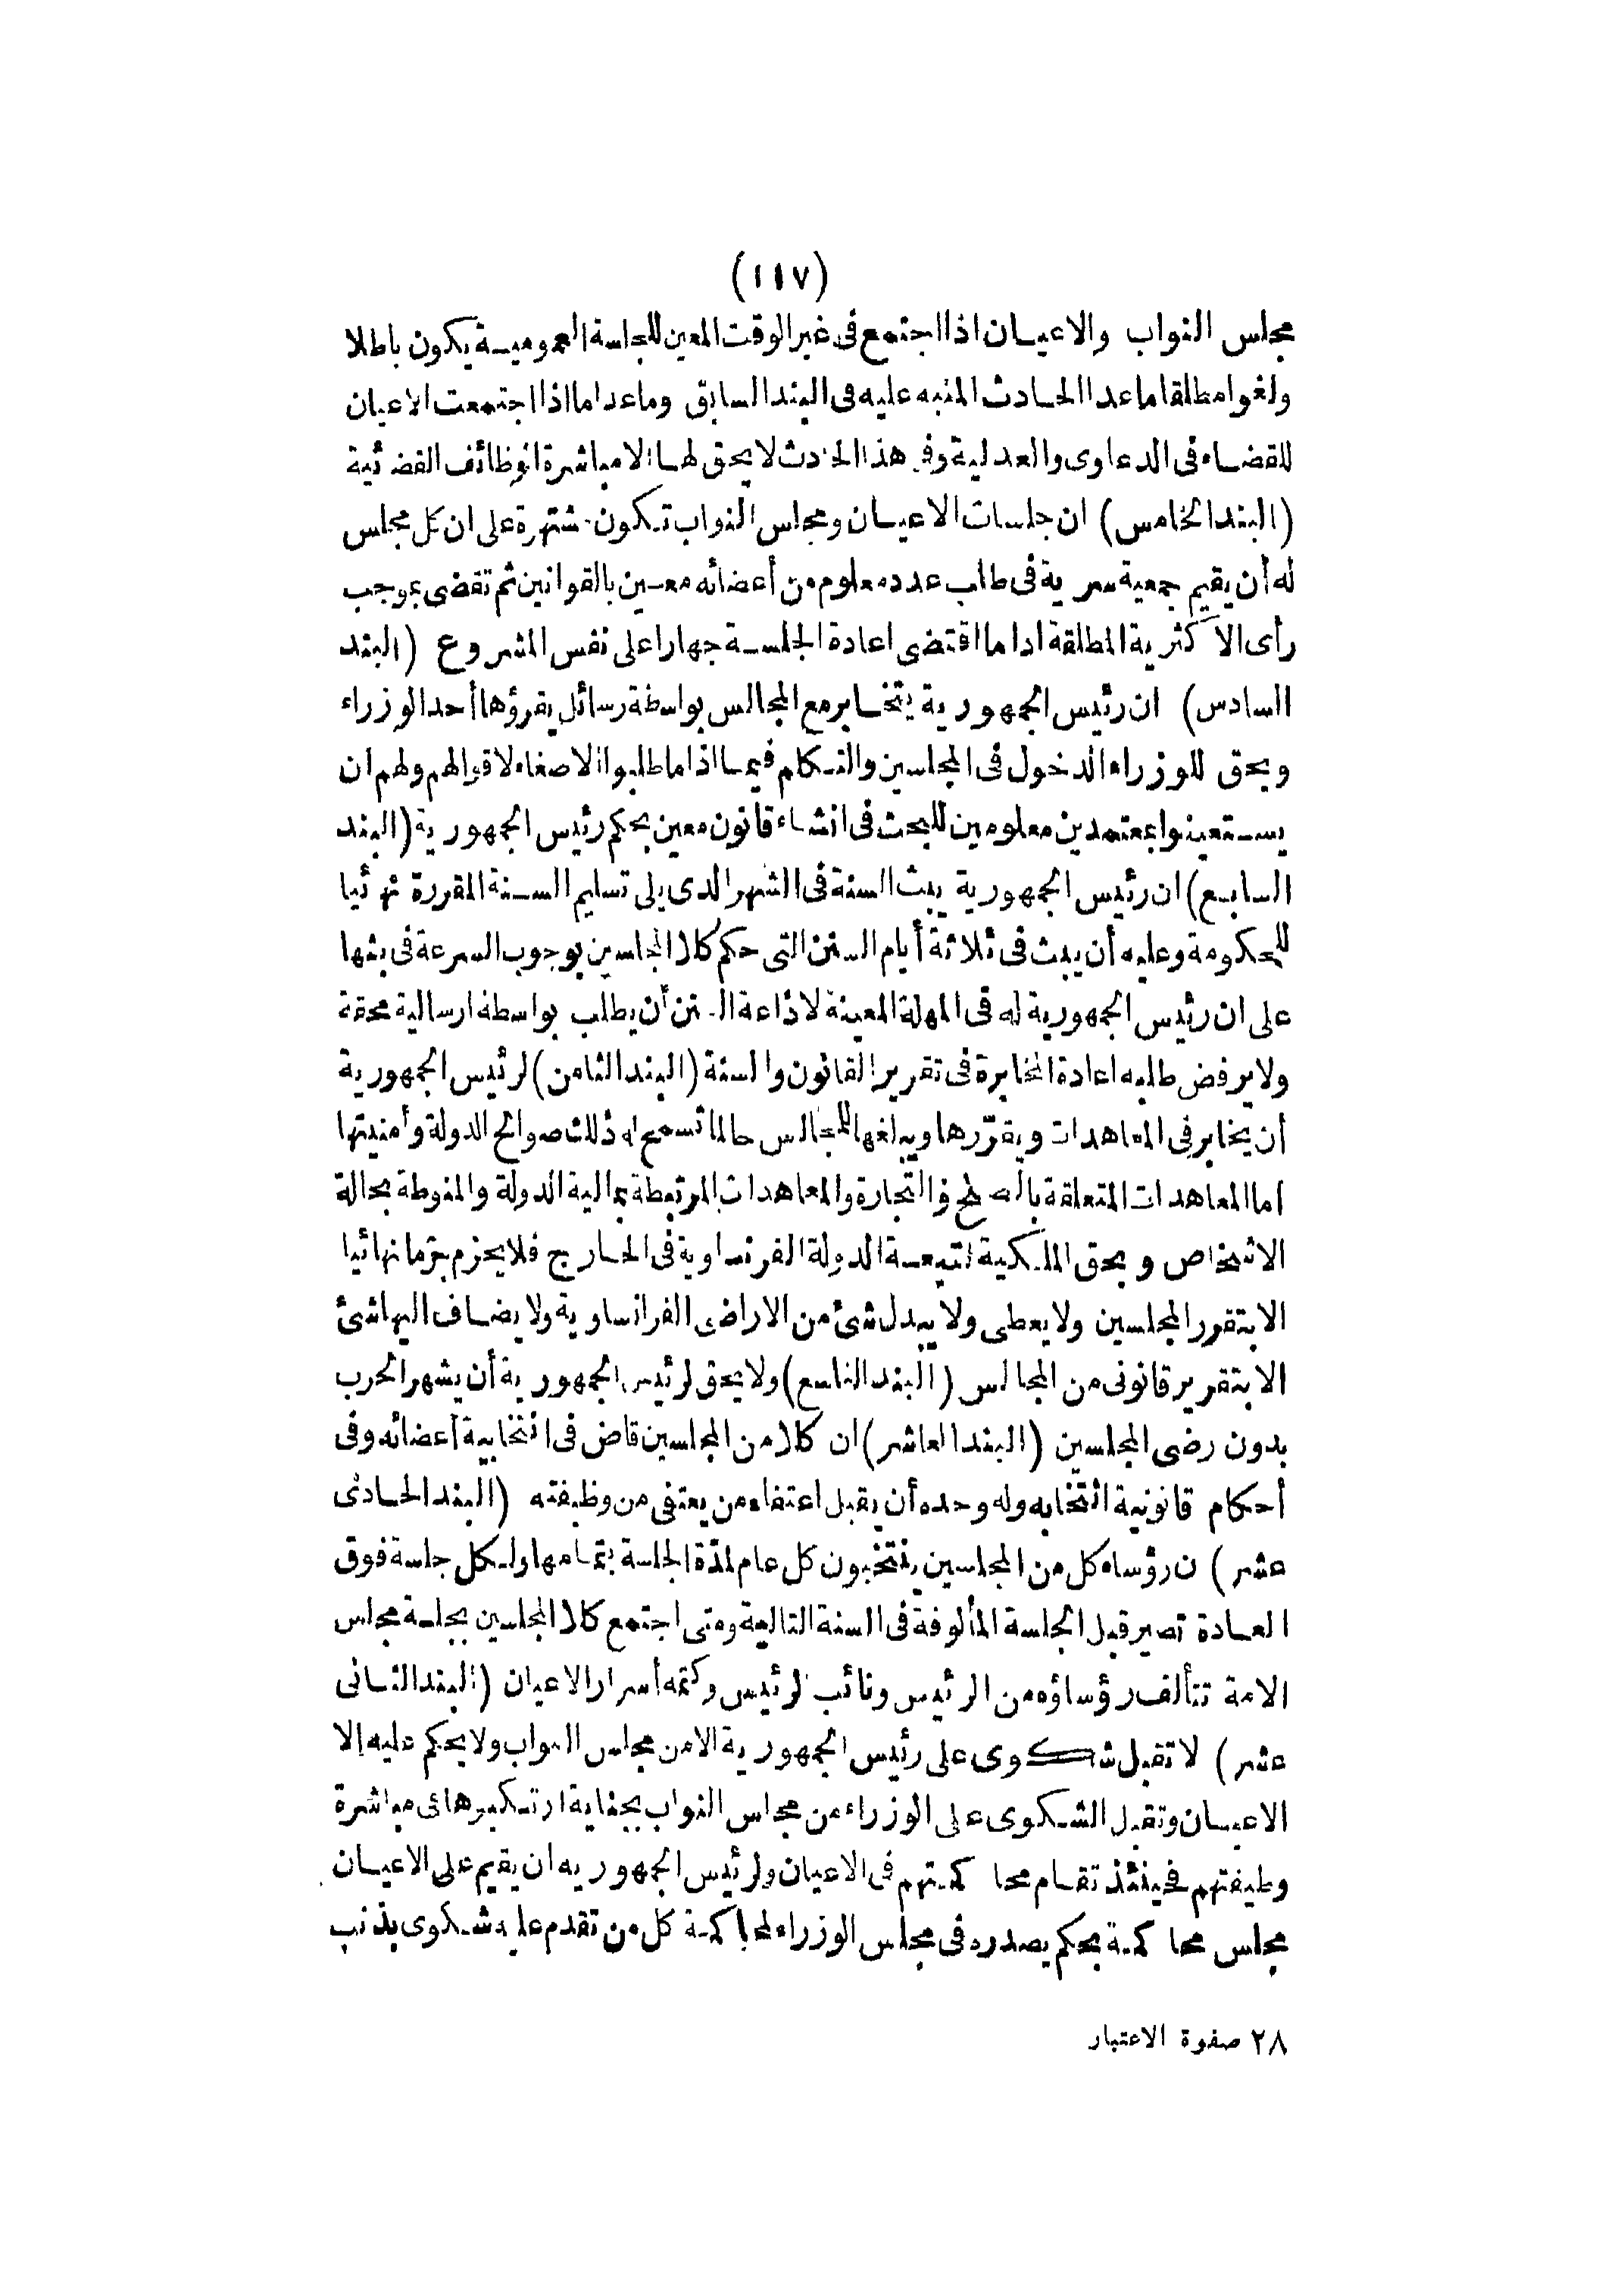 (١١٧)
مجلس النواب والاعيان اذا اجتمع فى غير الوقت المعين للجلسة العمومية يكون باطلا
ولغوا مطلقا ما عدا الحادث المنبه عليه فى البند السابق وما عدا ما اذا اجتمعت الاعيان
للقضاء فى الدعاوى والعدلية وفى هذا الحادث لا يحق لها الا مباشرة الوظائف القضائية
(البند الخامس) ان جلسات الاعيان ومجلس النواب تكون مشتهرة على ان كل مجلس
له أن يقيم جمعية سرية فى طلب عدد معلوم من أعضائه معين بالقوانين ثم تقضى بموجب
رأى الاكثرية المطلقة اذا ما اقتضى اعادة الجلسة جهارا على نفس المشروع (البند
السادس) ان رئيس الجمهورية يتخابر مع المجالس بواسطة رسائل يقرؤها أحد الوزراء
ويحق للوزراء الدخول فى المجلسين والتكلم فيهما اذا ما طلبوا الاصغاء لاقوالهم ولهم ان
يستعينوا بمعتمدين معلومين للبحث فى انشاء قانون معين بحكم رئيس الجمهورية (البند
السابع) ان رئيس الجمهورية يبث السنة فى الشهر الذى يلى تسليم السنة المقررة نهائيا
للحكومة وعليه أن يبث فى ثلاثة أيام السنن التى حكم كلا المجلسين بوجوب السرعة فى بثها
على ان رئيس الجمهورية له فى المهلة المعينة لاذاعة السنن أن يطلب بواسطة ارسالية محقة
ولا يرفض طلبه اعادة المخابرة فى تقرير القانون والسنة (البند الثامن) لرئيس الجمهورية
أن يخابر فى المعاهدات ويقرّرها ويبلغها للمجالس حالما تسمح له ذلك صوالح الدولة وأمنيتها
اما المعاهدات المتعلقة بالصلح والتجارة والمعاهدات المرتبطة بمالية الدولة والمنوطة بحالة
الاشخاص وبحق الملكية لتبعة الدولة الفرنساوية فى الخارج فلا يجزم بتمامها نهائيا
الا بتقرر المجلسين ولا يعطى ولا يبدل شئ من الاراضى الفرانساوية ولا يضاف اليها شئ
الا بتقرير قانونى من المجالس (البند التاسع) ولا يحق لرئيس الجمهورية أن يشهر الحرب
بدون رضى المجلسين (البند العاشر) ان كلا من المجلسين قاض فى انتخابية أعضائه وفى
أحكام قانونية انتخابه وله وحده أن يقبل اعتفاء من يعتفى من وظيفته (البند الحادى
عشر) ن رؤساء كل من المجلسين ينتخبون كل عام لمدّة الجلسة بتمامها ولكل جلسة فوق
العادة تصير قبل الجلسة المألوفة فى السنة التالية ومتى اجتمع كلا المجلسين بجلسة مجلس
الامة تتألف رؤساؤه من الرئيس ونائب الرئيس وكتمه أسرار الاعيان (البند الثانى
عشر) لا تقبل شكوى على رئيس الجمهورية الا من مجلس النواب ولا يحكم عليه إلا
الاعيان وتقبل الشكوى على الوزراء من مجلس النواب بجناية ارتكبوها فى مباشرة
وظيفتهم فحينئذ تقام محاكمتهم فى الاعيان ولرئيس الجمهوريه ان يقيم على الاعيان
مجلس محاكمة بحكم يصدره فى مجلس الوزراء لمحاكمة كل من تقدم عليه شكوى بذنب
٢٨ صفوة الاعتبار